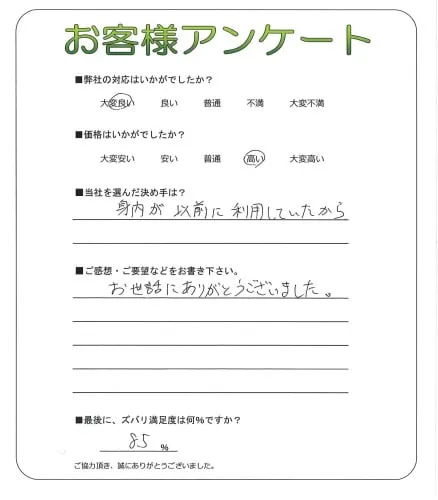 お客様アンケート
■弊社の対応はいかがでしたか？
大変良い 良い 普通 不満 大変不満
■価格はいかがでしたか？
大変安い 安い 普通 高い 大変高い
■当社を選んだ決め手は？
身内が以前に利用していたから
■ご感想・ご要望などをお書き下さい。
お世話にありがとうございました。
■最後に、ズバリ満足度は何％ですか？
85 %
ご協力頂き、誠にありがとうございました。